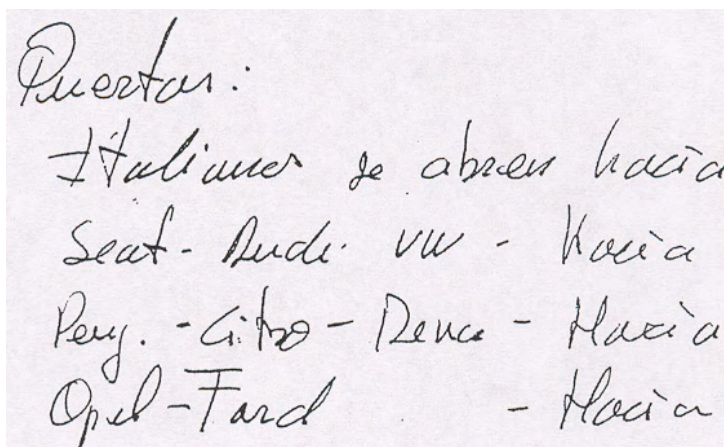 Puertas:
Italianos se abren hacia
Seat - Audi VW - Hacia
Peug. - Citro - Renau - Hacia
Opel - Ford - Hacia